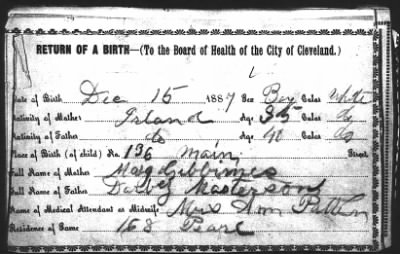 RETURN OF A BIRTH—(To the Board of Health of the City of Cleveland.)
Date of Birth Dec 15 1887 Sex Boy Color white
Nativity of Mother Island Age 35 Color do
Nativity of Father do Age 40 Color do
Place of Birth (of child) No. 136 Main Street
Full Name of Mother Marg Gibbines
Full Name of Father Masterson
Name of Medical Attendant or Midwife Mrs Ann Patten
Residence of Same 168 Pearl